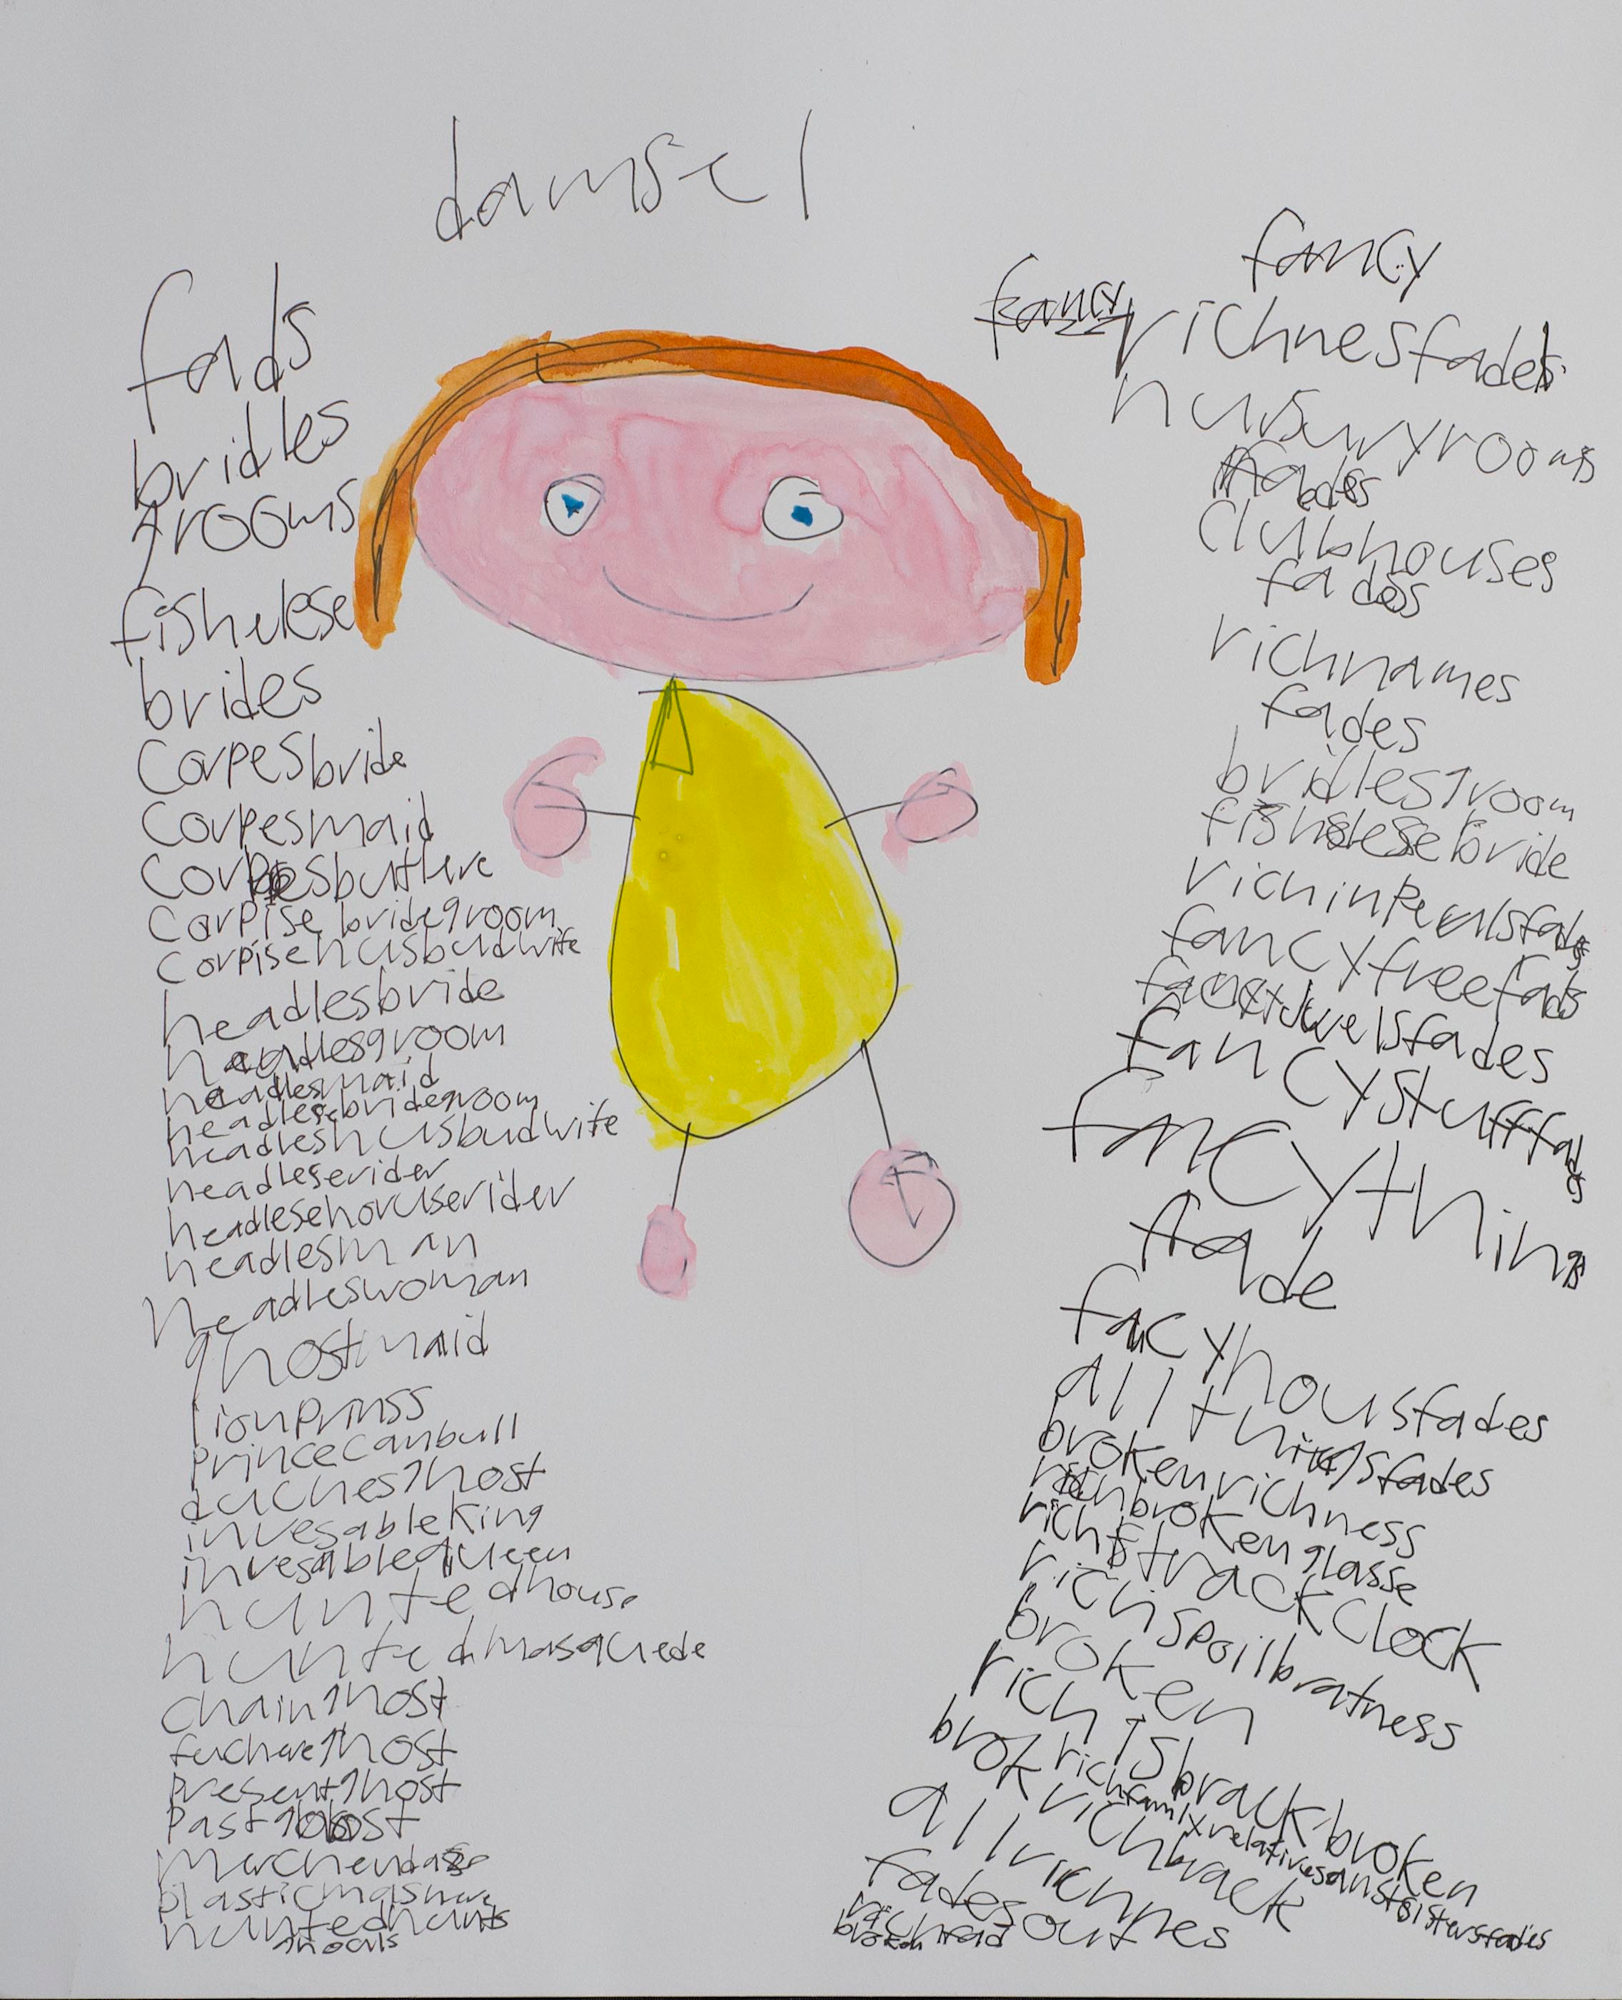 damsel
fads
bridles
grooms
fishelese
brides
corpesbride
corpesmaid
corpesbutlere
corpise bridegroom
corpisehusbudwife
headlesbride
headlesgroom
headlesmaid
headlesebridegroom
headleshusbudwife
headleserider
headlesehoruserider
headlesman
headleswoman
ghostmaid
lionprinss
princecanbull
duchesghost
invesableking
invesablequeen
huntedhouse
huntedmasquede
chainghost
fuchereghost
presentghost
pastghost
plasticmashere
huntedhunts
fancy
fancy
richnesfades
nusuryrooms
fades
clubhouses
fades
richnames
fades
bridlesgroom
fishelesebride
fancyfreefads
fancyjuwelsfades
fancystufffades
fancythings
fade
fancyhousfades
allthingsfades
brokenrichness
richbrokenglasse
richtrackclock
richspoilbratness
broken
richisbrackbroken
richfamlyrelativesanstsistersfades
brokrichbrack
allrichnes
fadesout